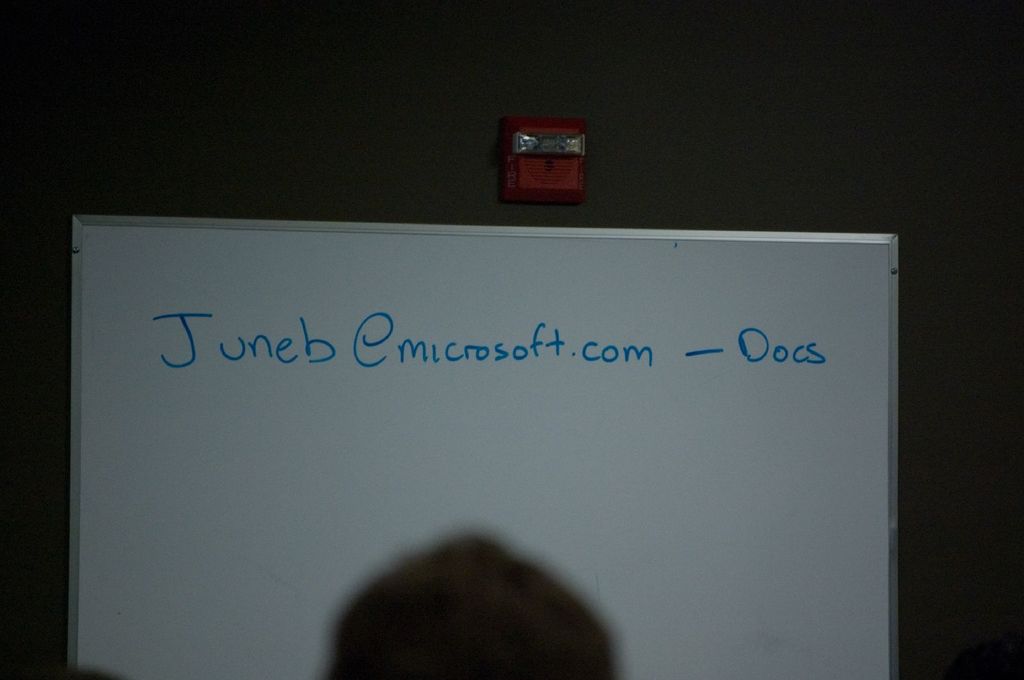 FIRE
Juneb@microsoft.com – Docs